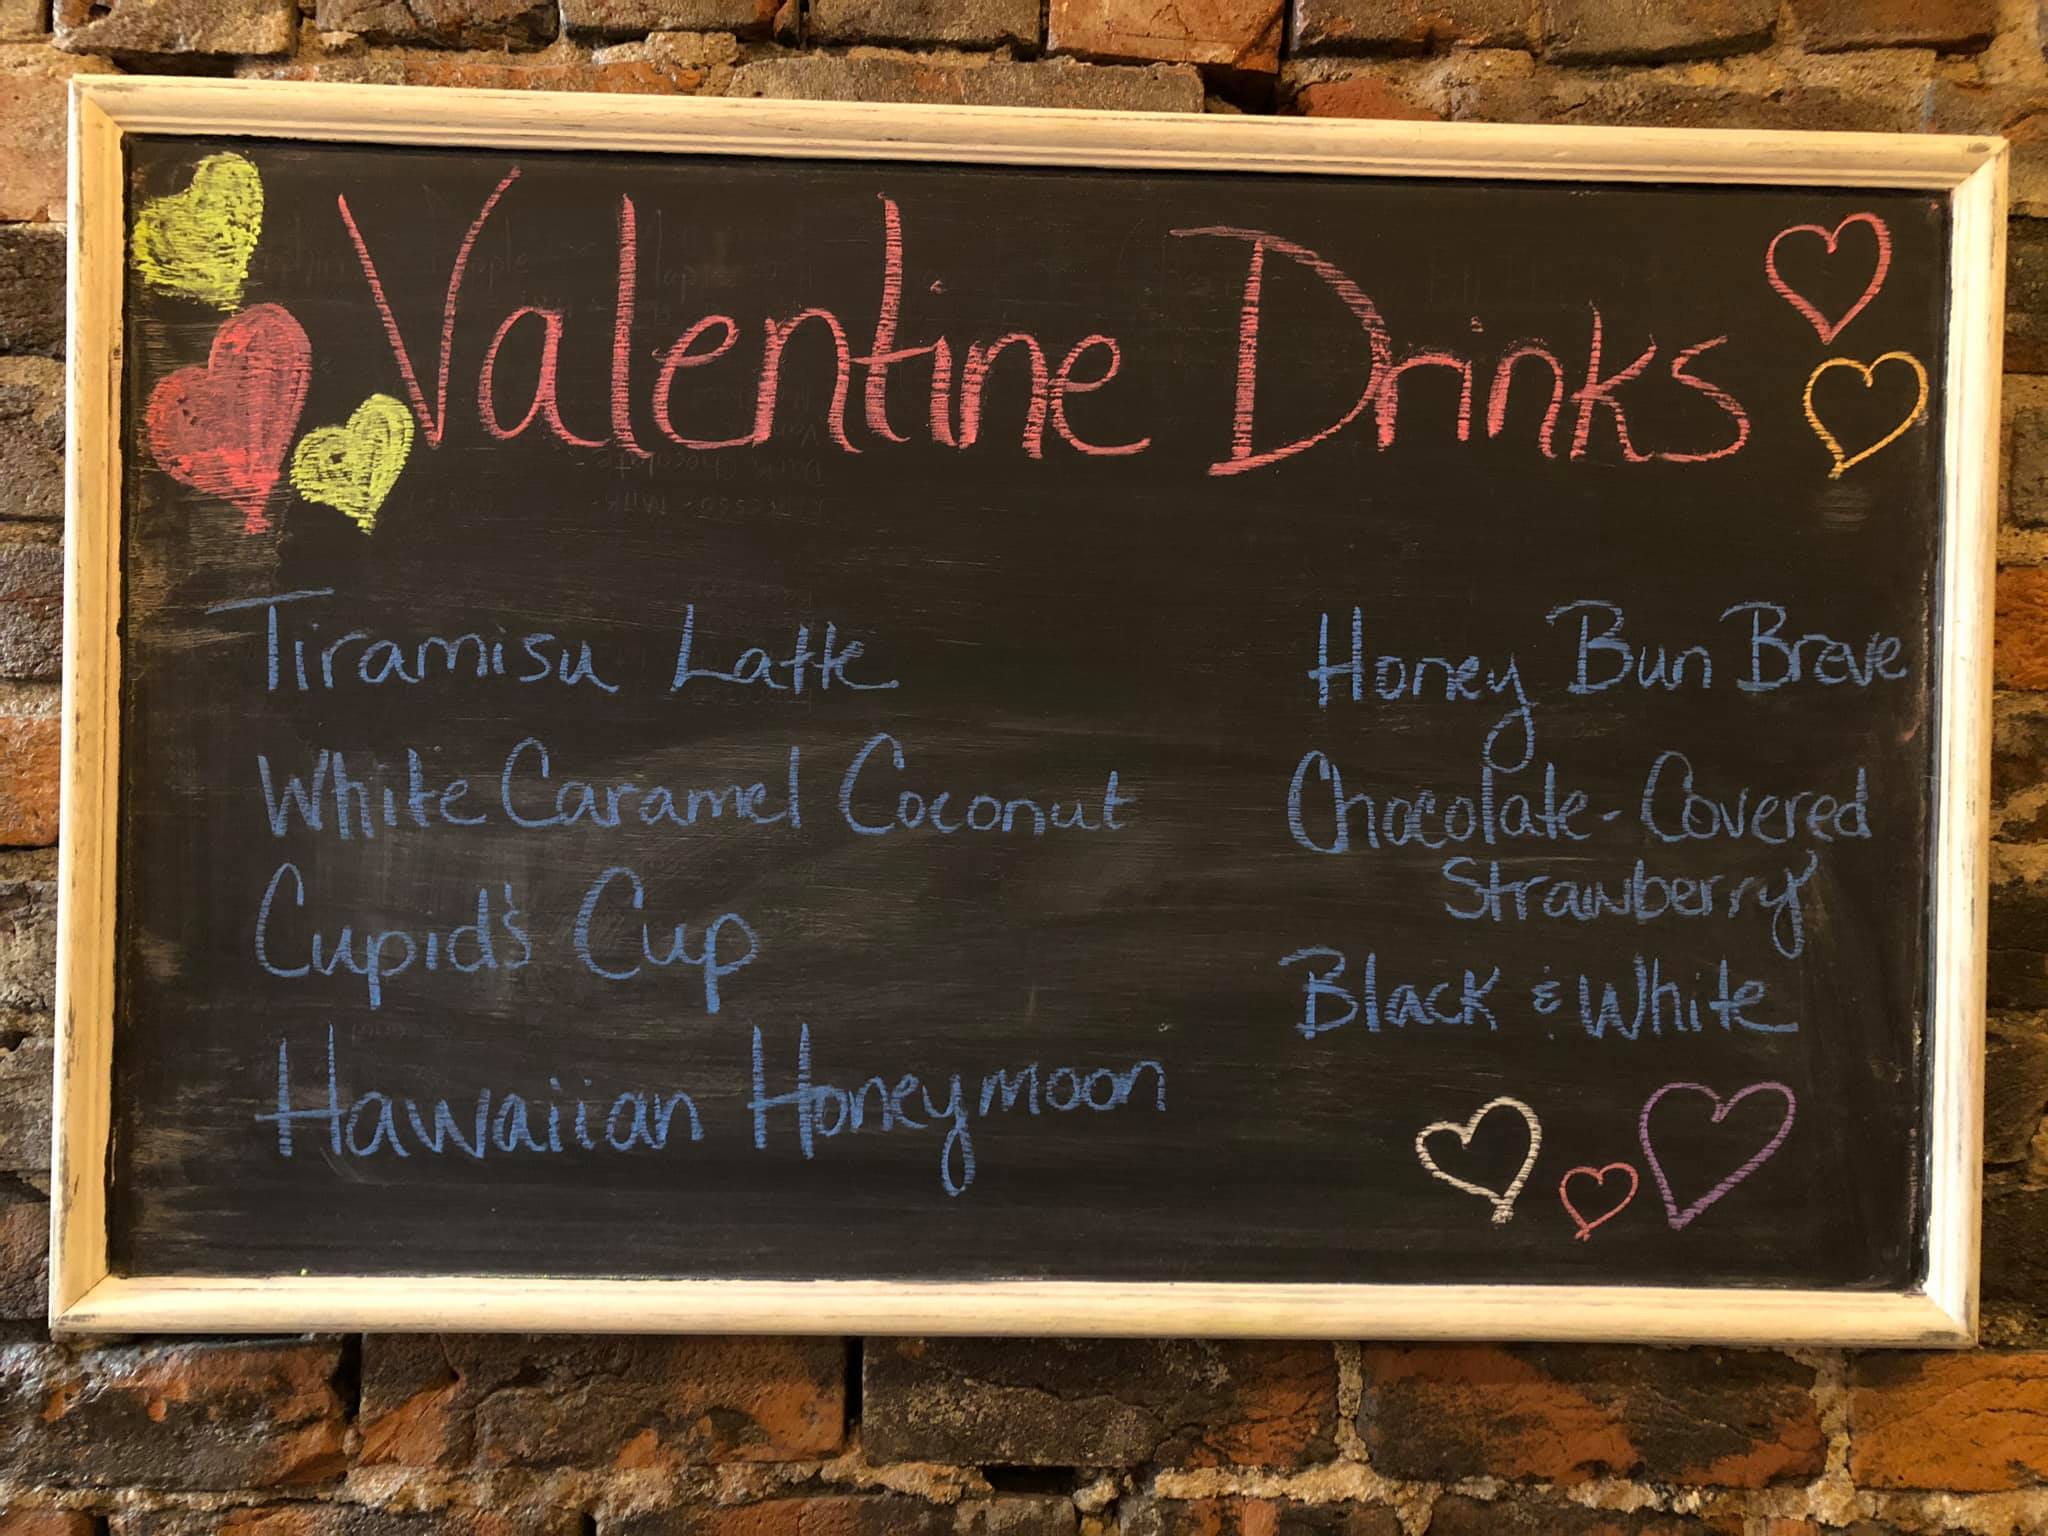 Valentine Drinks
Tiramisu Latte
White Caramel Coconut
Cupid's Cup
Hawaiian Honeymoon
Honey Bun Breve
Chocolate-Covered
Strawberry
Black & White